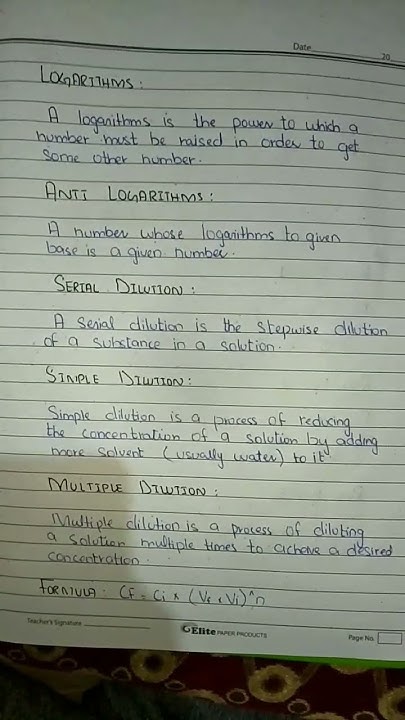 Date 20
LOGARITHMS:
A logarithms is the power to which a
number must be raised in order to get
some other number.
ANTI LOGARITHMS:
A number whose logarithms to given
base is a given number.
SERIAL DILUTION:
A serial dilution is the stepwise dilution
of a substance in a solution.
SIMPLE DILUTION:
Simple dilution is a process of reducing
the concentration of a solution by adding
more solvent (usually water) to it.
MULTIPLE DILUTION:
Multiple dilution is a process of diluting
a solution multiple times to acheve a desired
concentration.
FORMULA: CF = Ci x (Vf x Vi)^n
Teacher's Signature Elite PAPER PRODUCTS Page No.